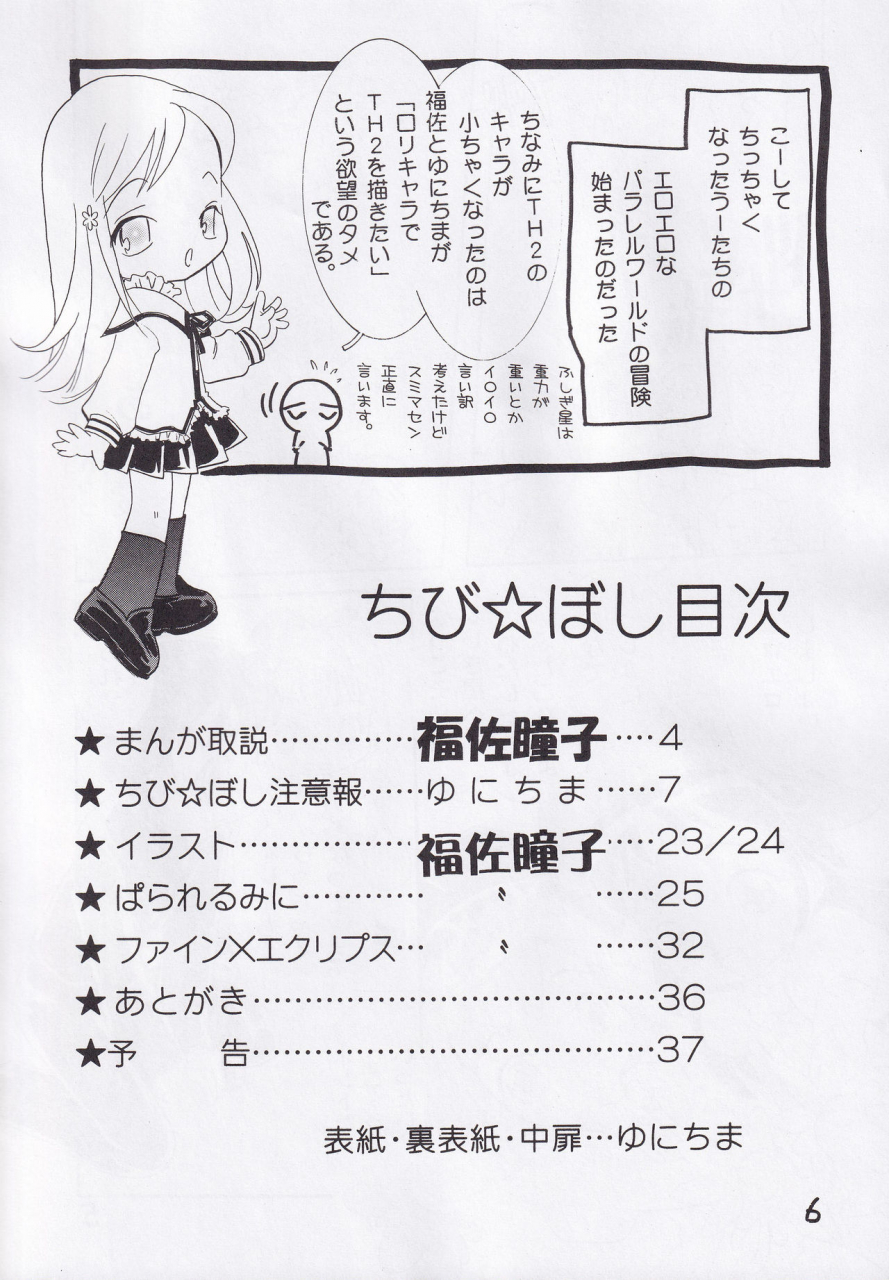 こーして
ちっちゃく
なったうーたちの
エロエロな
パラレルワールドの冒険
始まったのだった
ちなみにTH2の
キャラが
小ちゃくなったのは
福佐とゆにちまが
「ロリキャラで
TH2を描きたい」
という欲望のタメ
である。
ふしぎ星は
重力が
重いとか
イロイロ
言い訳
考えたけど
スミマセン
正直に
言います。
ちび☆ぼし目次
★まんが取説……………福佐瞳子……4
★ちび☆ぼし注意報……ゆにちま……7
★イラスト………………福佐瞳子……23／24
★ぱられるみに………… 〃 ……25
★ファイン×エクリプス… 〃 ……32
★あとがき……………………………………36
★予　　告……………………………………37
表紙・裏表紙・中扉…ゆにちま
6